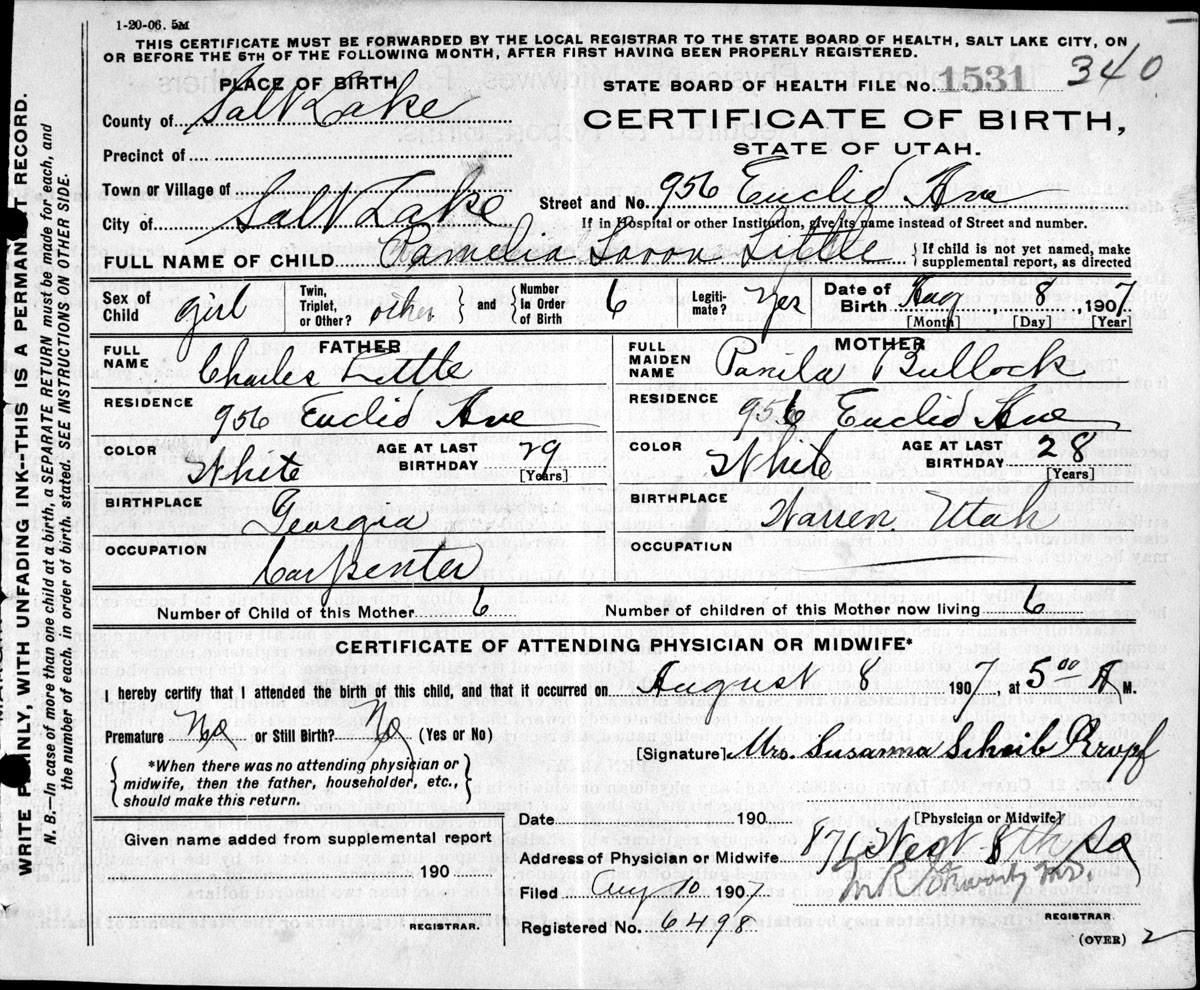 1-20-06. 5M
THIS CERTIFICATE MUST BE FORWARDED BY THE LOCAL REGISTRAR TO THE STATE BOARD OF HEALTH, SALT LAKE CITY, ON
OR BEFORE THE 5TH OF THE FOLLOWING MONTH, AFTER FIRST HAVING BEEN PROPERLY REGISTERED.
340
PLACE OF BIRTH
STATE BOARD OF HEALTH FILE NO. 1531
County of Salt Lake
CERTIFICATE OF BIRTH,
STATE OF UTAH.
Precinct of
Town or Village of
Street and No. 956 Euclid Ave
City of Salt Lake
If in Hospital or other Institution, give its name instead of Street and number.
FULL NAME OF CHILD Pamelia Lavon Little { If child is not yet named, make supplemental report, as directed
Sex of Child girl Twin, Triplet, or Other? other } and { Number in Order of Birth 6 Legitimate? Yes Date of Birth Aug 8, 1907
[Month] [Day] [Year]
FATHER
FULL NAME Charles Little
RESIDENCE 956 Euclid Ave
COLOR White AGE AT LAST BIRTHDAY 29 [Years]
BIRTHPLACE Georgia
OCCUPATION Carpenter
Number of Child of this Mother 6
MOTHER
FULL MAIDEN NAME Bullock
RESIDENCE 956 Euclid Ave
COLOR White AGE AT LAST BIRTHDAY 28 [Years]
BIRTHPLACE Warren Utah
OCCUPATION
Number of children of this Mother now living 6
CERTIFICATE OF ATTENDING PHYSICIAN OR MIDWIFE*
I hereby certify that I attended the birth of this child, and that it occurred on August 8 1907, at 5 00 A M.
Premature No or Still Birth? No (Yes or No)
[Signature] Mrs. Susanna Scheib Kropf
*When there was no attending physician or
midwife, then the father, householder, etc.,
should make this return.
[Physician or Midwife]
Date 190
Given name added from supplemental report
190
REGISTRAR.
Address of Physician or Midwife 871 West 8th So
Filed Aug 10 1907
REGISTRAR.
Registered No. 6498
(OVER) 2
WRITE PLAINLY, WITH UNFADING INK--THIS IS A PERMANENT RECORD.
N. B.--In case of more than one child at a birth, a SEPARATE RETURN must be made for each, and
the number of each, in order of birth, stated. SEE INSTRUCTIONS ON OTHER SIDE.